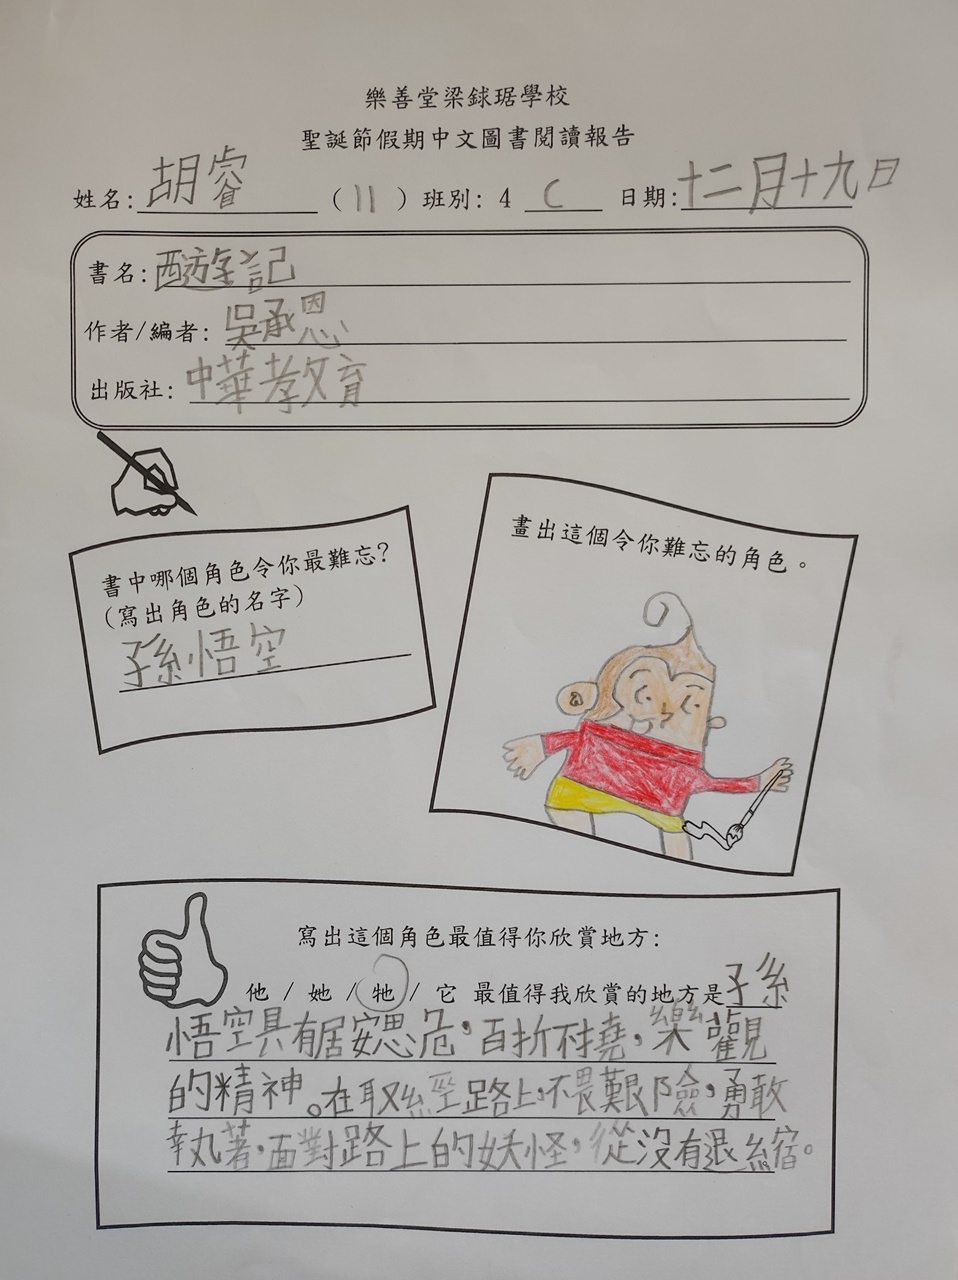 樂善堂梁銶琚學校
聖誕節假期中文圖書閱讀報告
姓名:胡睿 (11) 班別: 4 C 日期:十二月十九日
書名:西遊記
作者/編者:吳承恩
出版社:中華教育
書中哪個角色令你最難忘?
(寫出角色的名字)
孫悟空
畫出這個令你難忘的角色。
寫出這個角色最值得你欣賞地方:
他 / 她 / 牠 / 它 最值得我欣賞的地方是孫
悟空具有居安思危，百折不撓，樂觀
的精神。在取經路上，不畏艱險，勇敢
執著，面對路上的妖怪，從沒有退縮。